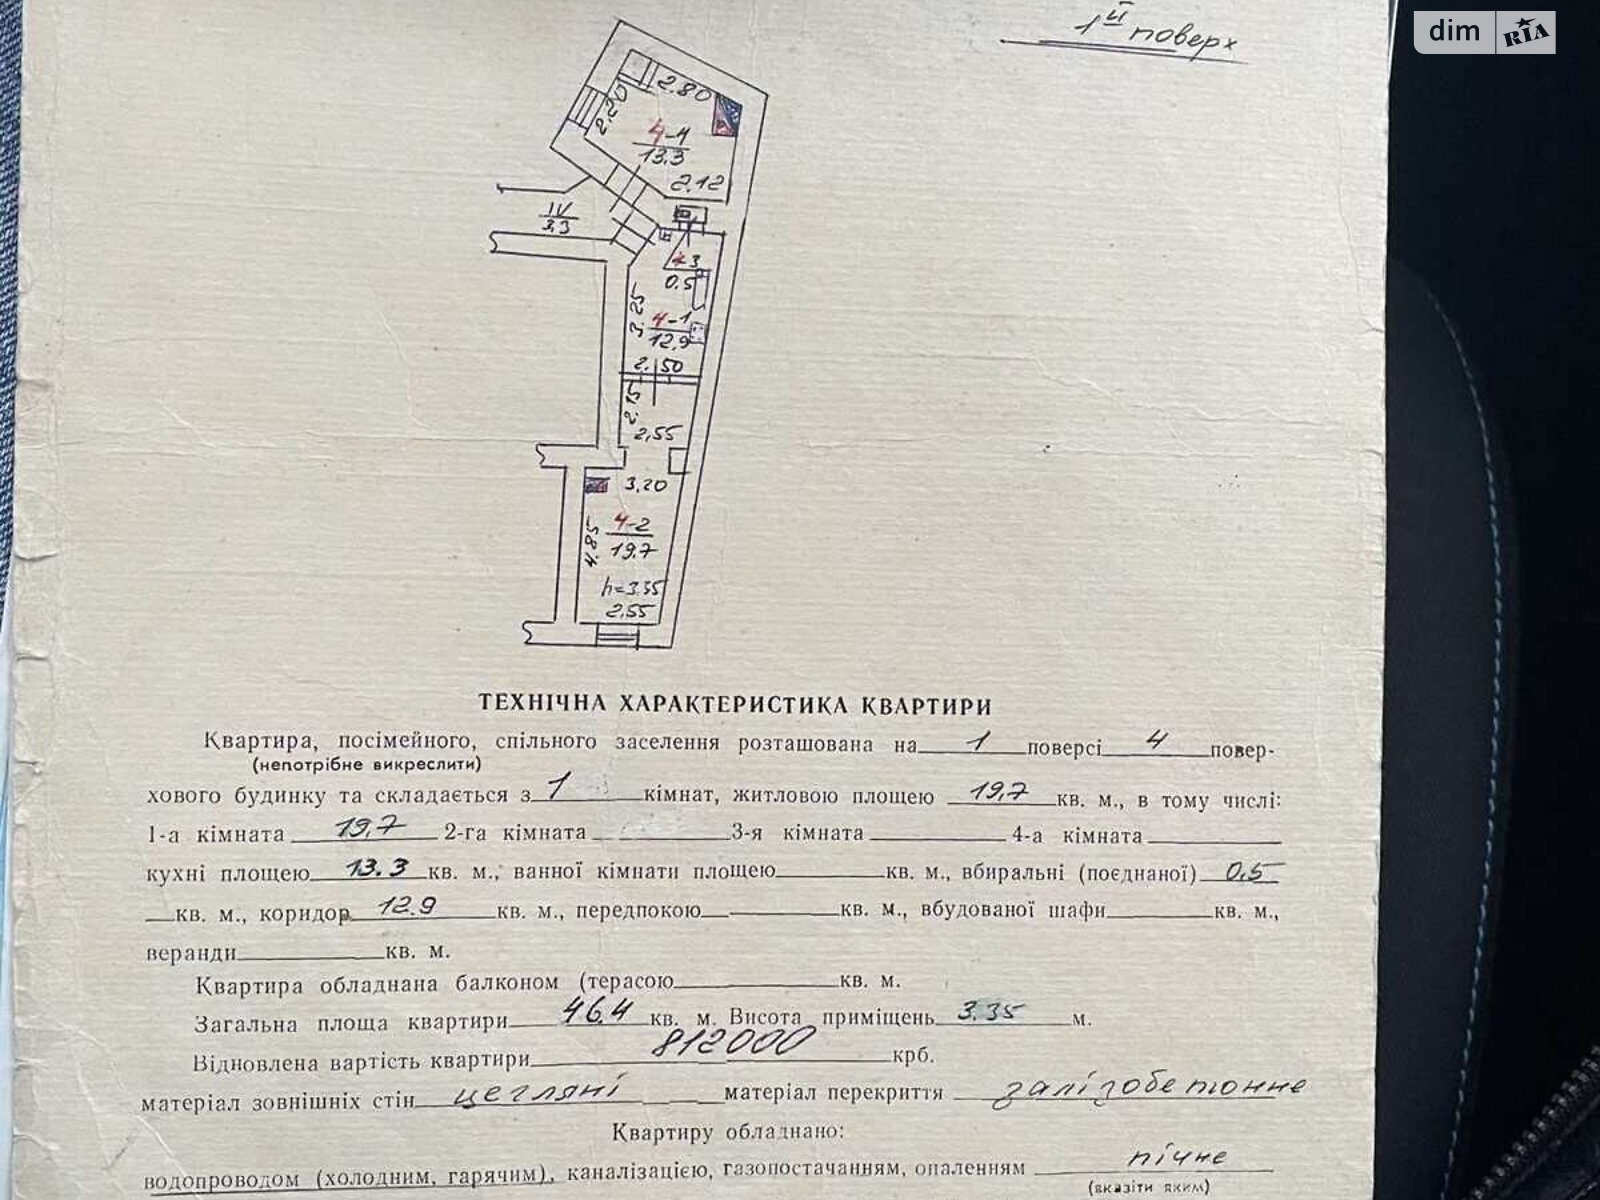 dim RIA
1й поверх
2.80
2.20
4-4
13.3
2.12
IV
3.3
4-3
0.5
3.25
4-1
12.9
2.50
2.75
2,55
3,20
4-2
19.7
4.85
h=3.35
2.55
ТЕХНІЧНА ХАРАКТЕРИСТИКА КВАРТИРИ
Квартира, посімейного, спільного заселення розташована на 1 поверсі 4 повер-
(непотрібне викреслити)
хового будинку та складається з 1 кімнат, житловою площею 19,7 кв. м., в тому числі:
1-а кімната 19,7 2-га кімната 3-я кімната 4-а кімната
кухні площею 13.3 кв. м., ванної кімнати площею кв. м., вбиральні (поєднаної) 0,5
кв. м., коридор 12.9 кв. м., передпокою кв. м., вбудованої шафи кв. м.,
веранди кв. м.
Квартира обладнана балконом (терасою кв. м.
Загальна площа квартири 46.4 кв. м. Висота приміщень 3.35 м.
Відновлена вартість квартири 812000 крб.
матеріал зовнішніх стін цегляні матеріал перекриття залізобетонне
Квартиру обладнано:
водопроводом (холодним, гарячим), каналізацією, газопостачанням, опаленням пічне
(вказіти яким)